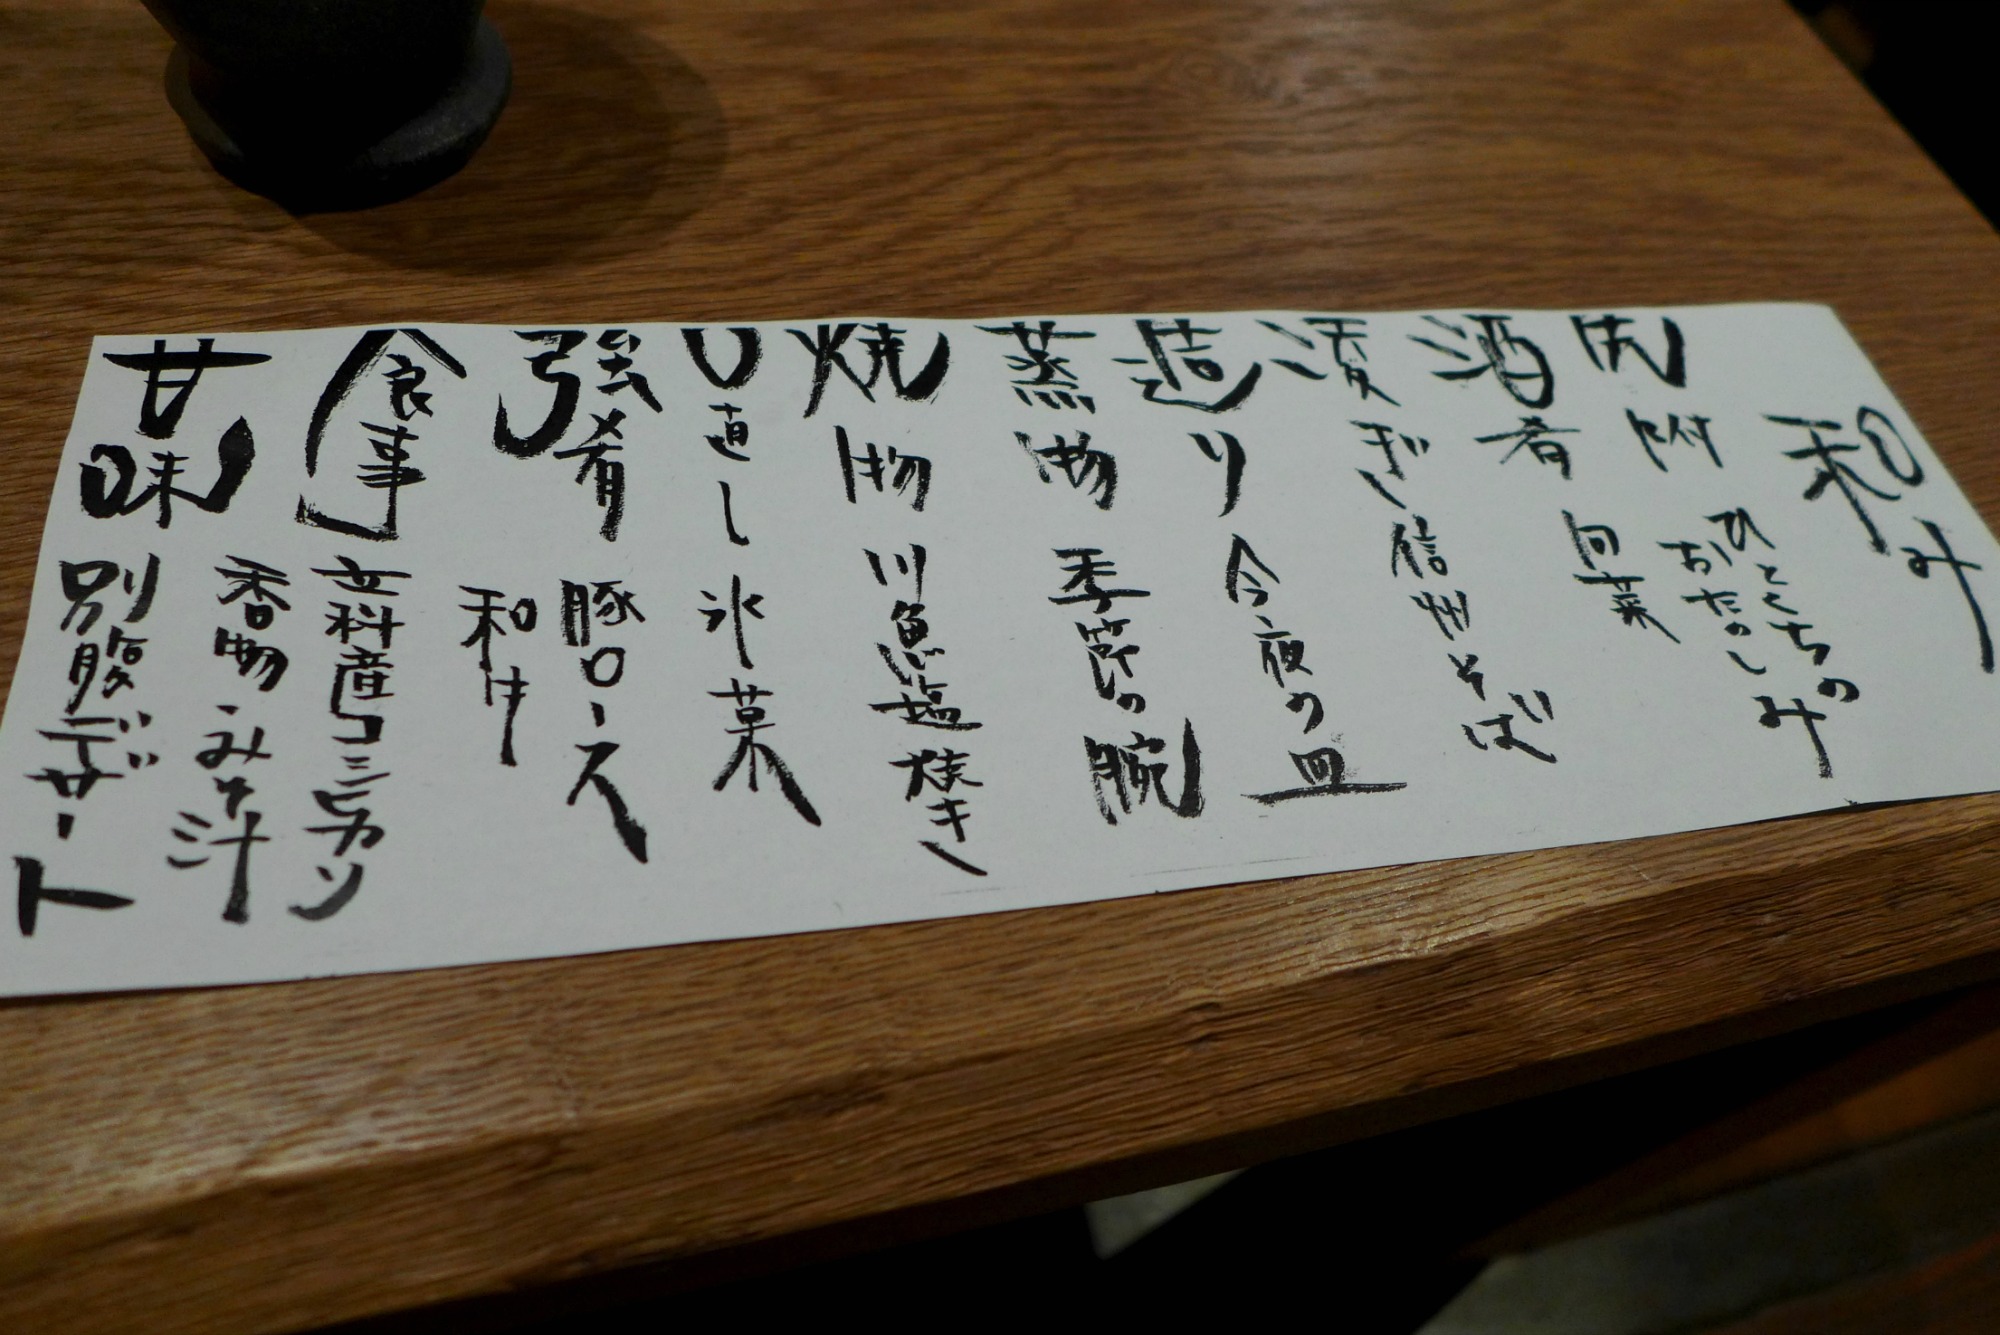 和み
先附 ひとくちの
おたのしみ
酒肴 旬菜
凌ぎ 信州そば
造り 今夜の皿
蒸物 季節の腕
焼物 川魚塩焼き
口直し 氷菓
強肴 豚ロース
和け
食事 立科産コシヒカリ
香物・みそ汁
甘味 別腹デザート